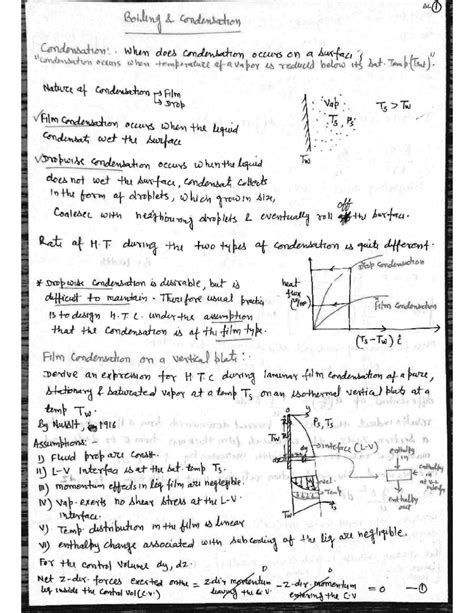 BC ①
Boiling & Condensation
Condensation:- When does condensation occurs on a surface?
"Condensation occurs when temperature of a vapor is reduced below its sat. Temp (Tw)"
Nature of condensation → Film
→ Drop
Vap
Ts, Ps
Ts > Tw
Tw
✓Film Condensation occurs when the liquid
Condensat wet the surface
✓Dropwise condensation occurs when the liquid
does not wet the surface, condensat collects
in the form of droplets, which grow in size,
Coalesec with neighbouring droplets & eventually roll off the surface.
Rate of H.T during the two types of condensation is quite different.
* Dropwise condensation is desirable, but is
difficult to maintain. Therefore usual practice
is to design H.T.C. under the assumption
that the condensation is of the film type.
heat
flux
Drop Condensation
Film Condensation
(Ts - Tw)
Film Condensation on a vertical plate:
Derive an expression for H.T.C during laminar film condensation of a pure,
stationary & saturated vapor at a temp Ts on an isothermal vertical plate at a
temp Tw.
By Nusslt, 1916
Assumptions:-
I) Fluid prop are const.
II) L-V Interface is at the sat. temp Ts.
III) momentum effects in liq film are neglegible.
IV) Vap. exerts no shear stress at the L-V
interface.
V) Temp distribution in the film is linear
VI) enthalpy change associated with subcooling of the liq are neglegible.
y
Ps, Ts
Tw
dy
interface (L-V)
Vel.
Ts
enthalpy
in
enthalpy
out
For the control volume dy, dz.
Net z-dir. forces exerted on the = z-dir momentum - z-dir momentum = 0 —①
liq inside the control vol (C.V.) leaving the C.V entering the C.V